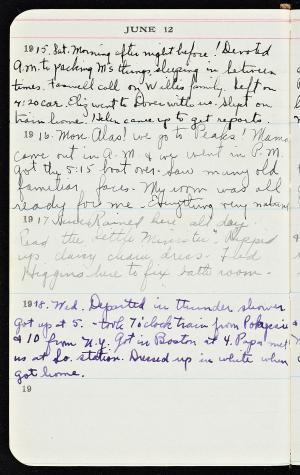 JUNE 12
1915. Sat. Morning after night before! Devoted
A.M. to packing M's things, sleeping in between
times. Farewell call on Willis family. Left on
4:20 car. Eliz. went to Dover with us. Slept on
train home. Helen came up to get reports.
1916. Mon. Alas! we go to Peaks! Mama
came out in A.M. & we went in P.M.
Got the 5:15 boat over. Saw many old
familiar faces. My room was all
ready for me. Everything very natural
1917 Rained here all day.
Read the "Little Minister". Ripped
up daisy chain dress. Fred
Higgins here to fix bath room.
1918. Wed. Departed in thunder shower
Got up at 5. - took 7 o'clock train from Pokepsie
& 10 from N.Y. Got in Boston at 4. Papa met
us at So. station. Dressed up in white when
got home.
19